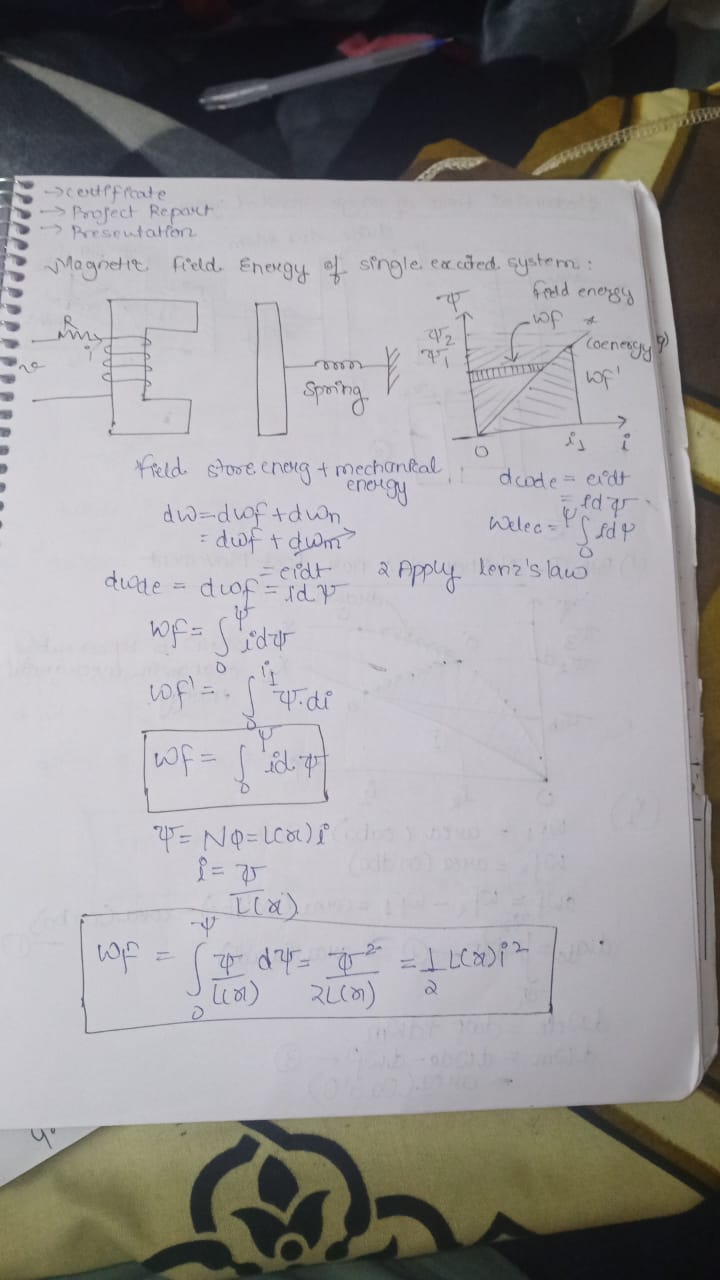 → certificate
→ Project Report
→ Presentation
Magnetic field Energy of single excited system:
R
i
v
spring
ψ
ψ2
ψ1
field energy
wf
coenergy
wf'
0
i1
i
field store energ + mechanical
energy
dw = dwf + dwm
= dwf + dwm
= eidt
dwele = dwf = idψ
= eidt
= idψ
Welec = ∫₀^ψ idψ
2 Apply lenz's law
wf = ∫₀^ψ idψ
wf' = ∫₀^i1 ψ.di
wf = ∫₀^ψ idψ
ψ = Nφ = L(x)i
i = ψ/L(x)
wf = ∫₀^ψ ψ/L(x) dψ = ψ²/2L(x) = 1/2 L(x)i²